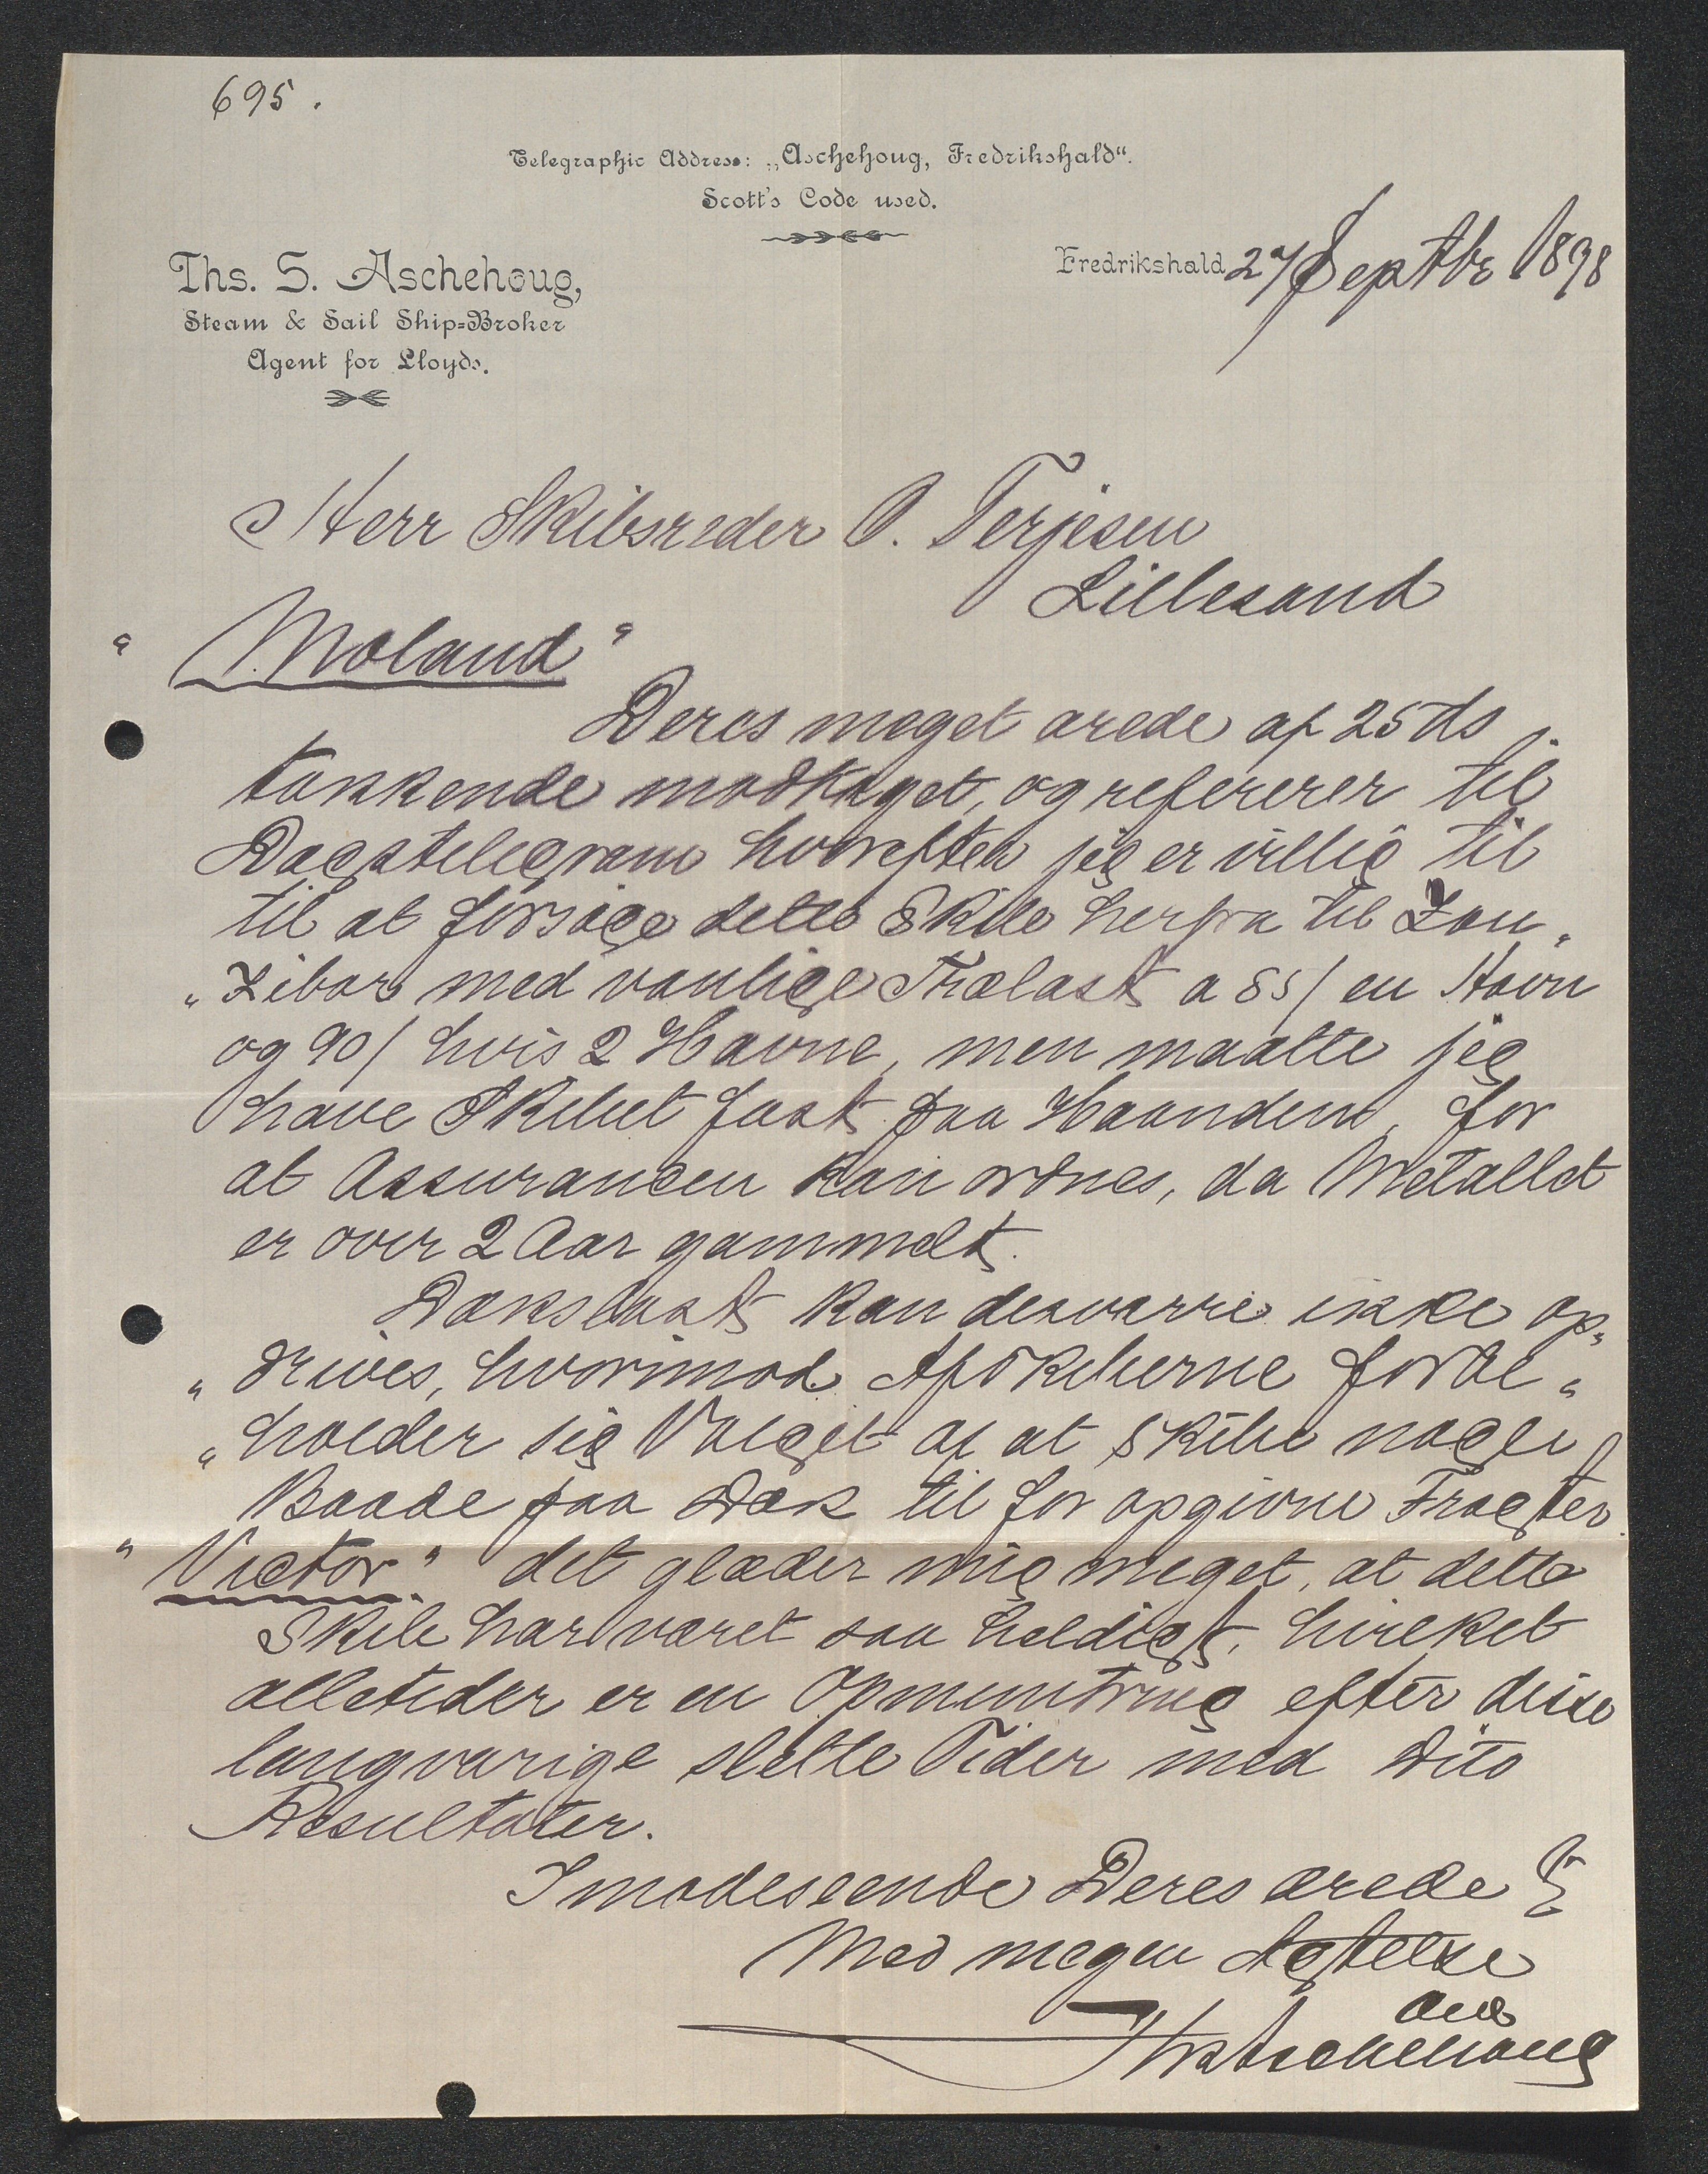 695.
Telegraphic Address: „Aschehoug, Fredrikshald“.
Scott's Code used.
Ths. S. Aschehoug,
Steam & Sail Ship=Broker
Agent for Lloyds.
Fredrikshald 27 Septbr 1898
Herr Skibsreder O. Terjesen
Lillesand
"Moland"
Deres meget ærede af 25 ds
takkende modtaget, og refererer til
Dagstelegram hvorefter jeg er villig til
til at forsøge dette Skib herfra til Zan„
„Zibar med vanlige Trælast a 85/ en Havn
og 90/ hvis 2 Havne, men maatte jeg
have Skibet fast paa Haanden, for
at Assurancen kan ordnes, da Metallet
er over 2 Aar gammelt.
Dækslast kan desværre ikke op„
„drives, hvorimod Afskiberne forbe„
„holder sig Valget af at skibe nogle
Baade paa Dæk til for opgivne Fragter.
"Victor" det glæder mig meget, at dette
Skib har været saa heldigt, hvilket
alletider er en Opmuntring efter disse
langvarige slette Tider med dito
Resultater.
Imødeseende Deres ærede &
Med megen Agtelse
Ths S Aschehoug